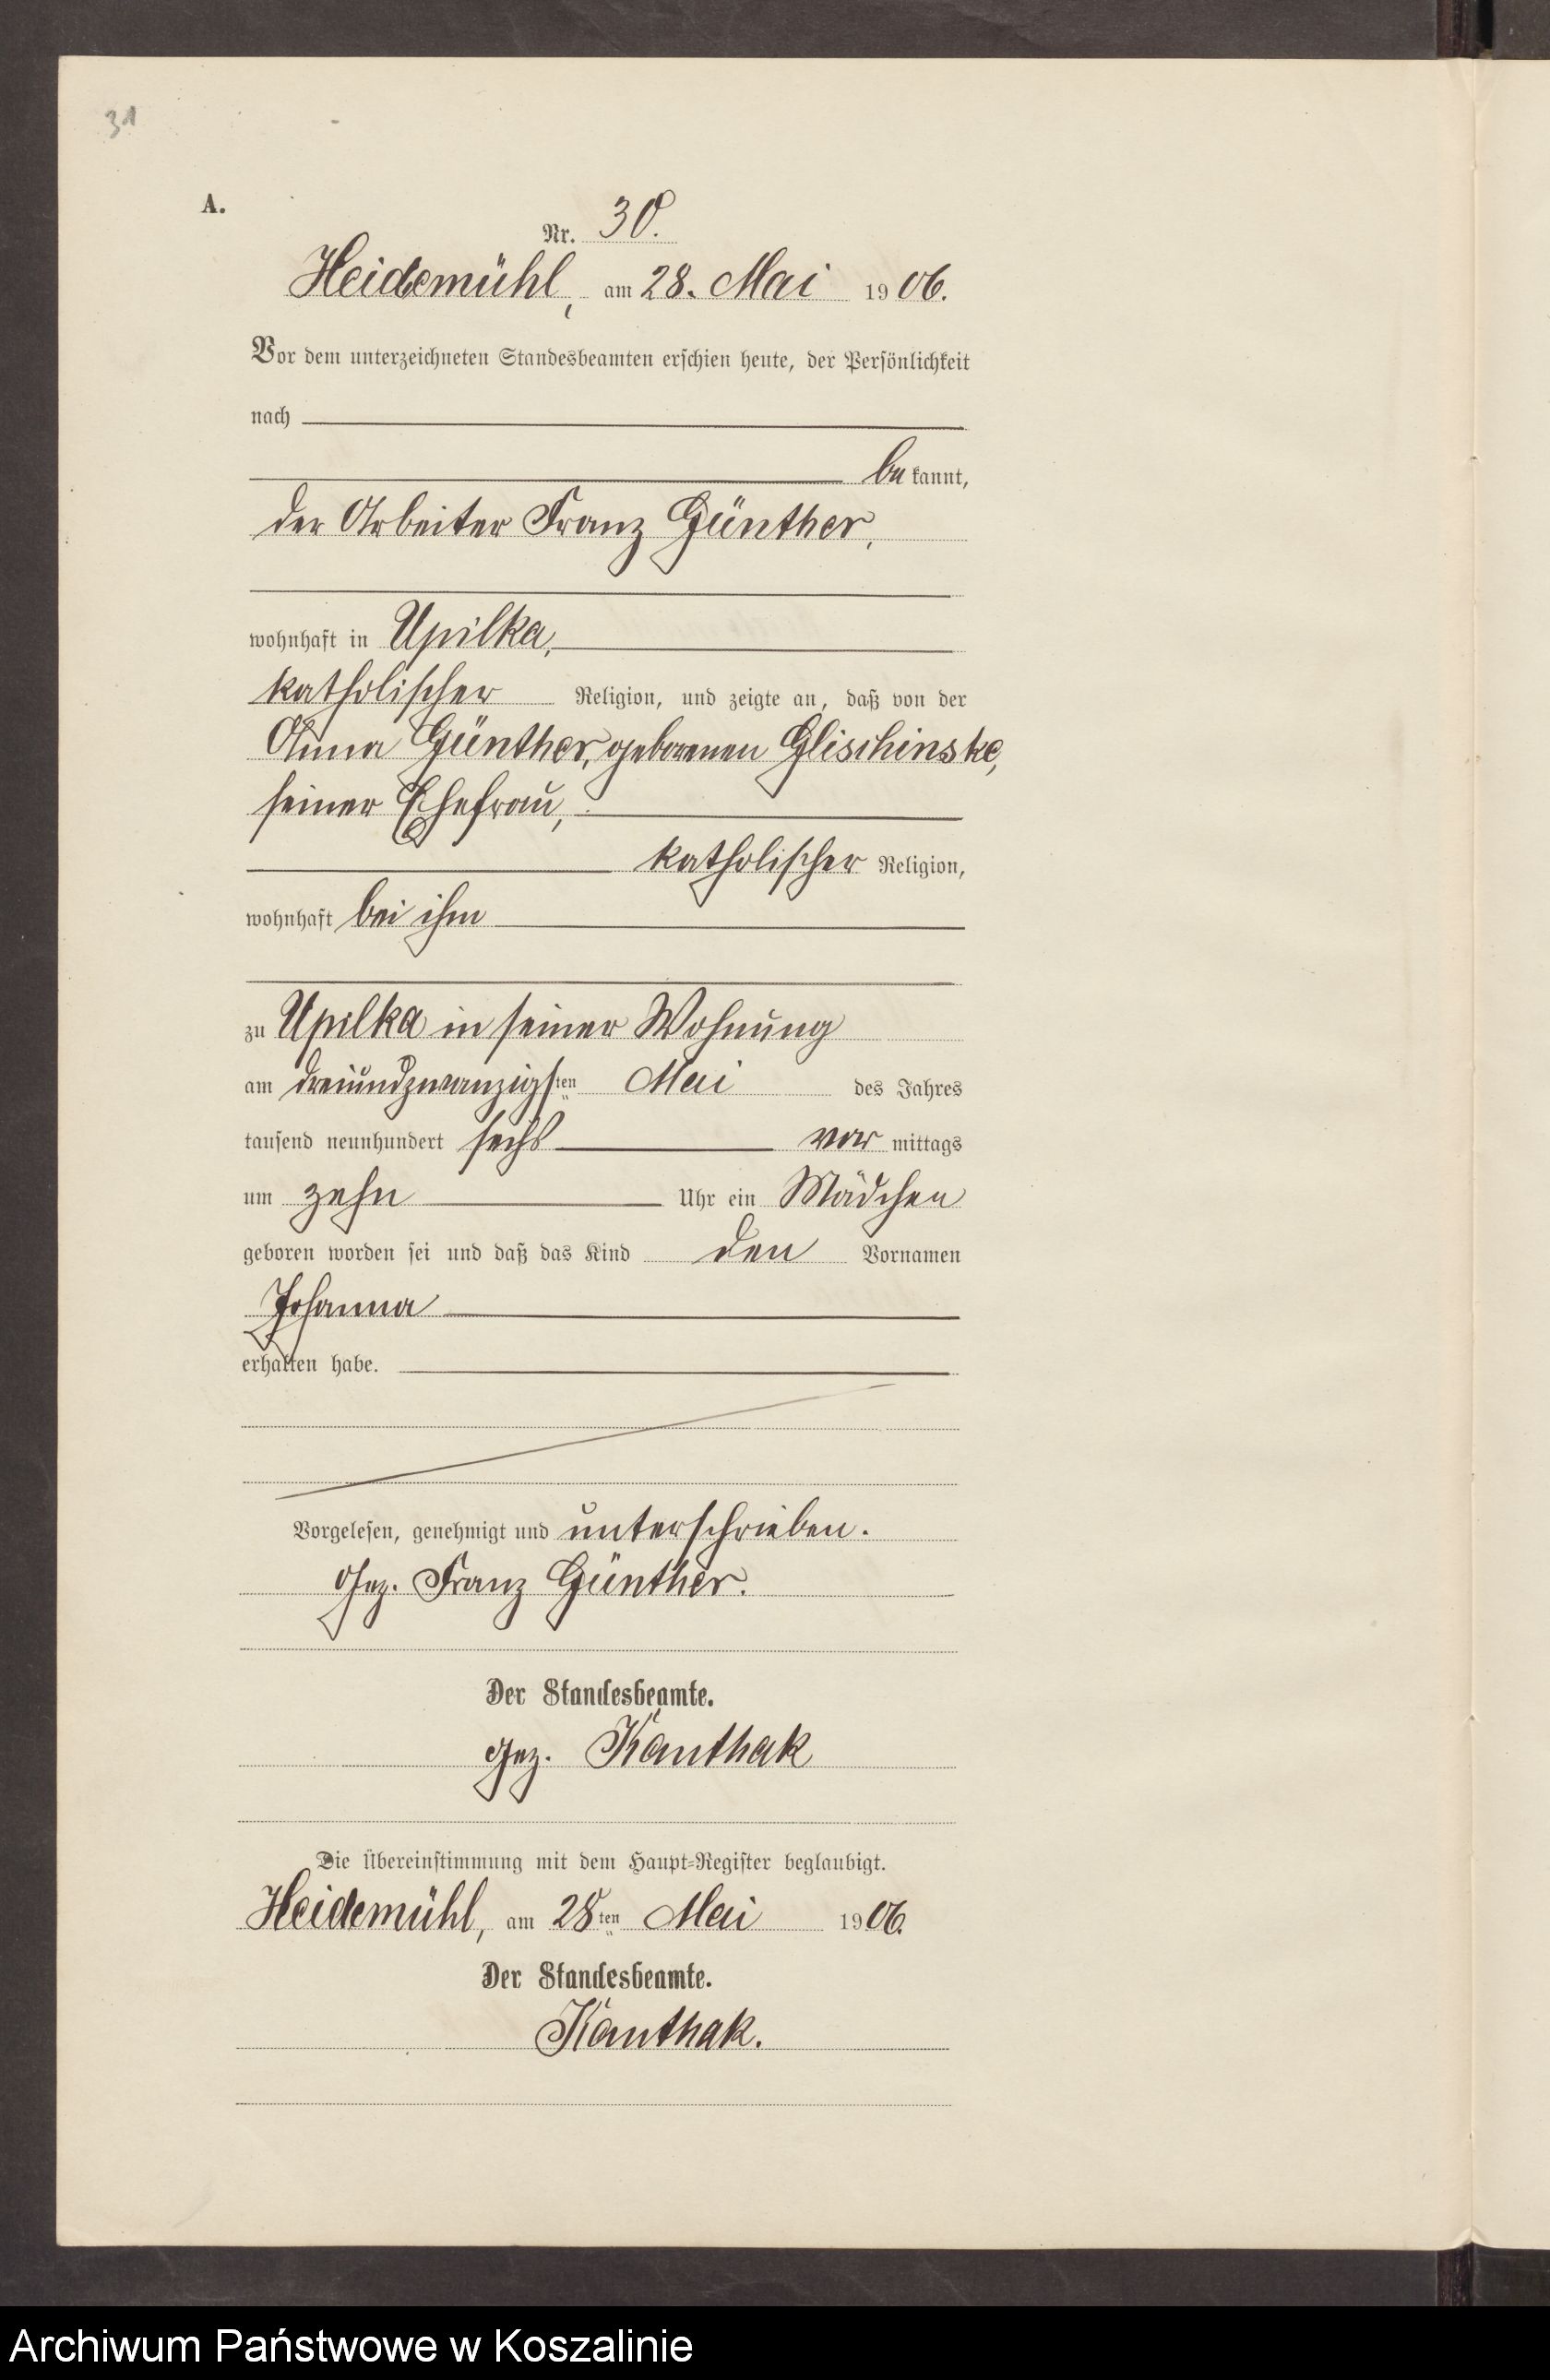 31
A.
Nr. 30.
Heidemühl, am 28. Mai 1906.
Vor dem unterzeichneten Standesbeamten erschien heute, der Persönlichkeit
nach
bekannt,
der Arbeiter Franz Günther,
wohnhaft in Upilka,
katholischer Religion, und zeigte an, daß von der
Anna Günther, geborenen Glischinske,
seiner Ehefrau,
katholischer Religion,
wohnhaft bei ihm
zu Upilka in seiner Wohnung
am dreiundzwanzigsten Mai des Jahres
tausend neunhundert sechs vormittags
um zehn Uhr ein Mädchen
geboren worden sei und daß das Kind den Vornamen
Johanna
erhalten habe.
Vorgelesen, genehmigt und unterschrieben.
Gez. Franz Günther.
Der Standesbeamte.
gez. Kanthak
Die Übereinstimmung mit dem Haupt-Register beglaubigt.
Heidemühl, am 28ten Mai 1906.
Der Standesbeamte.
Kanthak.
Archiwum Państwowe w Koszalinie